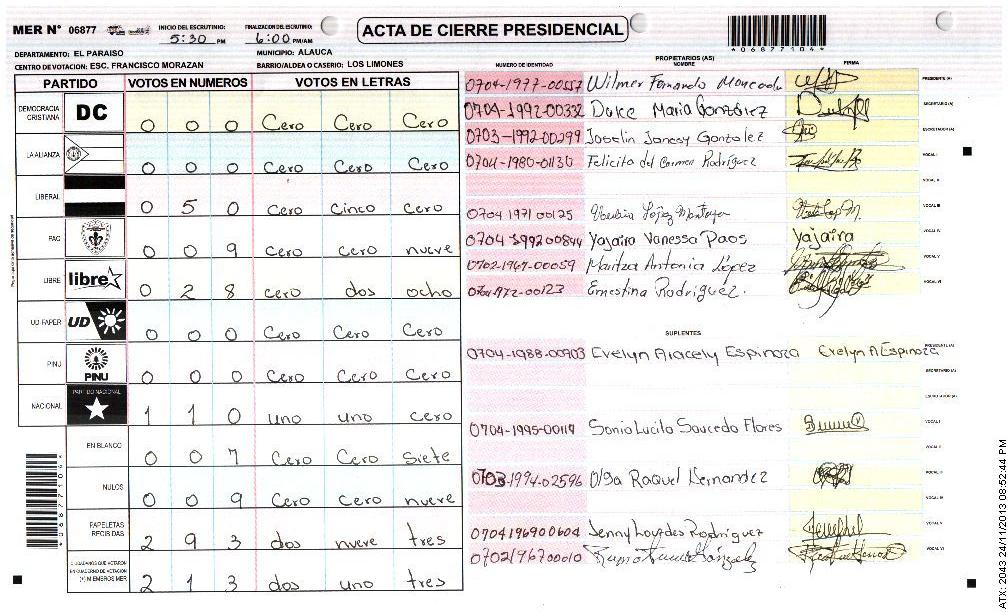 MER N° 06877
INICIO DEL ESCRUTINIO: 5:30 PM
FINALIZACION DEL ESCRUTINIO: 6:00 PM/AM
ACTA DE CIERRE PRESIDENCIAL
*06877104*
DEPARTAMENTO: EL PARAISO
MUNICIPIO: ALAUCA
CENTRO DE VOTACION: ESC. FRANCISCO MORAZAN
BARRIO/ALDEA O CASERIO: LOS LIMONES
PARTIDO VOTOS EN NUMEROS VOTOS EN LETRAS
DEMOCRACIA CRISTIANA DC 0 0 0 Cero Cero Cero
LA ALIANZA 0 0 0 Cero Cero Cero
LIBERAL 0 5 0 Cero Cinco Cero
PAC 0 0 9 Cero Cero nueve
LIBRE libre 0 2 8 cero dos ocho
UD FAPER UD 0 0 0 Cero Cero Cero
PINU PINU 0 0 0 Cero Cero Cero
NACIONAL PARTIDO NACIONAL 1 1 0 uno uno Cero
EN BLANCO 0 0 7 Cero Cero Siete
NULOS 0 0 9 Cero Cero nueve
PAPELETAS RECIBIDAS 2 9 3 dos nueve tres
CIUDADANOS QUE VOTARON EN CUADERNO DE VOTACION (+) MIEMBROS MER 2 1 3 dos uno tres
*06877104*
PROPIETARIOS (AS)
NUMERO DE IDENTIDAD NOMBRE FIRMA
0704-1977-00557 Wilmer Fernando Moncada PRESIDENTE (A)
0704-1992-00332 Dulce Maria González SECRETARIO (A)
0703-1992-00299 Joselin Jancsy Gonzalez ESCRUTADOR (A)
0704-1980-01130 Felicita del Carmen Rodríguez VOCAL I
VOCAL II
0704 1971 00125 López Montoya VOCAL III
0704 1992 00844 Yajaira Vanessa Paos yajaira VOCAL IV
0702-1967-00059 Maritza Antonia López VOCAL V
00123 Ernestina Rodriguez. VOCAL VI
SUPLENTES
0704-1988-00903 Evelyn Aracely Espinoza Evelyn A Espinoza PRESIDENTE (A)
SECRETARIO (A)
ESCRUTADOR (A)
0704-1995-00119 Sonia Lucila Saucedo Flores VOCAL I
VOCAL II
0703-1994-02596 Olga Raquel Hernandez VOCAL III
VOCAL IV
0704196900604 Jenny Lourdes Rodriguez VOCAL V
0702196700010 VOCAL VI
ATX: 2043 24/11/2013 08:52:44 PM